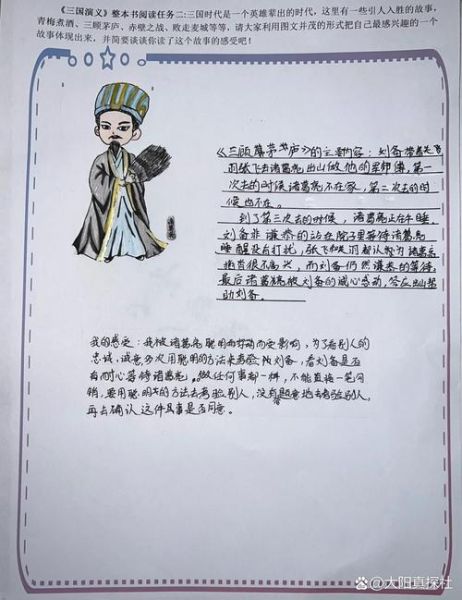 《三国演义》整本书阅读任务二:三国时代是一个英雄辈出的时代，这里有一些引人入胜的故事，
青梅煮酒、三顾茅庐、赤壁之战、败走麦城等等，请大家利用图文并茂的形式把自己最感兴趣的一个
故事体现出来，并简要谈谈你读了这个故事的感受吧！
《三顾茅庐》的主要内容：刘备带着张飞
诸葛亮出山做他的军师，第一
次去的时候诸葛亮不在家，第二次去的时
候也不在。
到了第三次去的时候，诸葛亮正在午睡
刘备非谦恭的站在院子里等待诸葛亮
睡醒没去打扰，张飞和关羽都认为诸葛亮
很不高兴，而刘备仍然谦恭的等待，
最后诸葛亮被刘备的诚心感动，答应出山帮
助刘备。
我的感受：我被诸葛亮聪明而受影响，为了看别人的
忠诚，诚意多次用聪明的方法来考验刘备，看刘备是否
有耐心等待诸葛亮。做任何事都一样，不能直接一笔勾
销，要用聪明的方法去考验别人，没有恶意地去考验别人，
再去确认这件事是否同意。
诸葛亮
百家号/太阳真探社